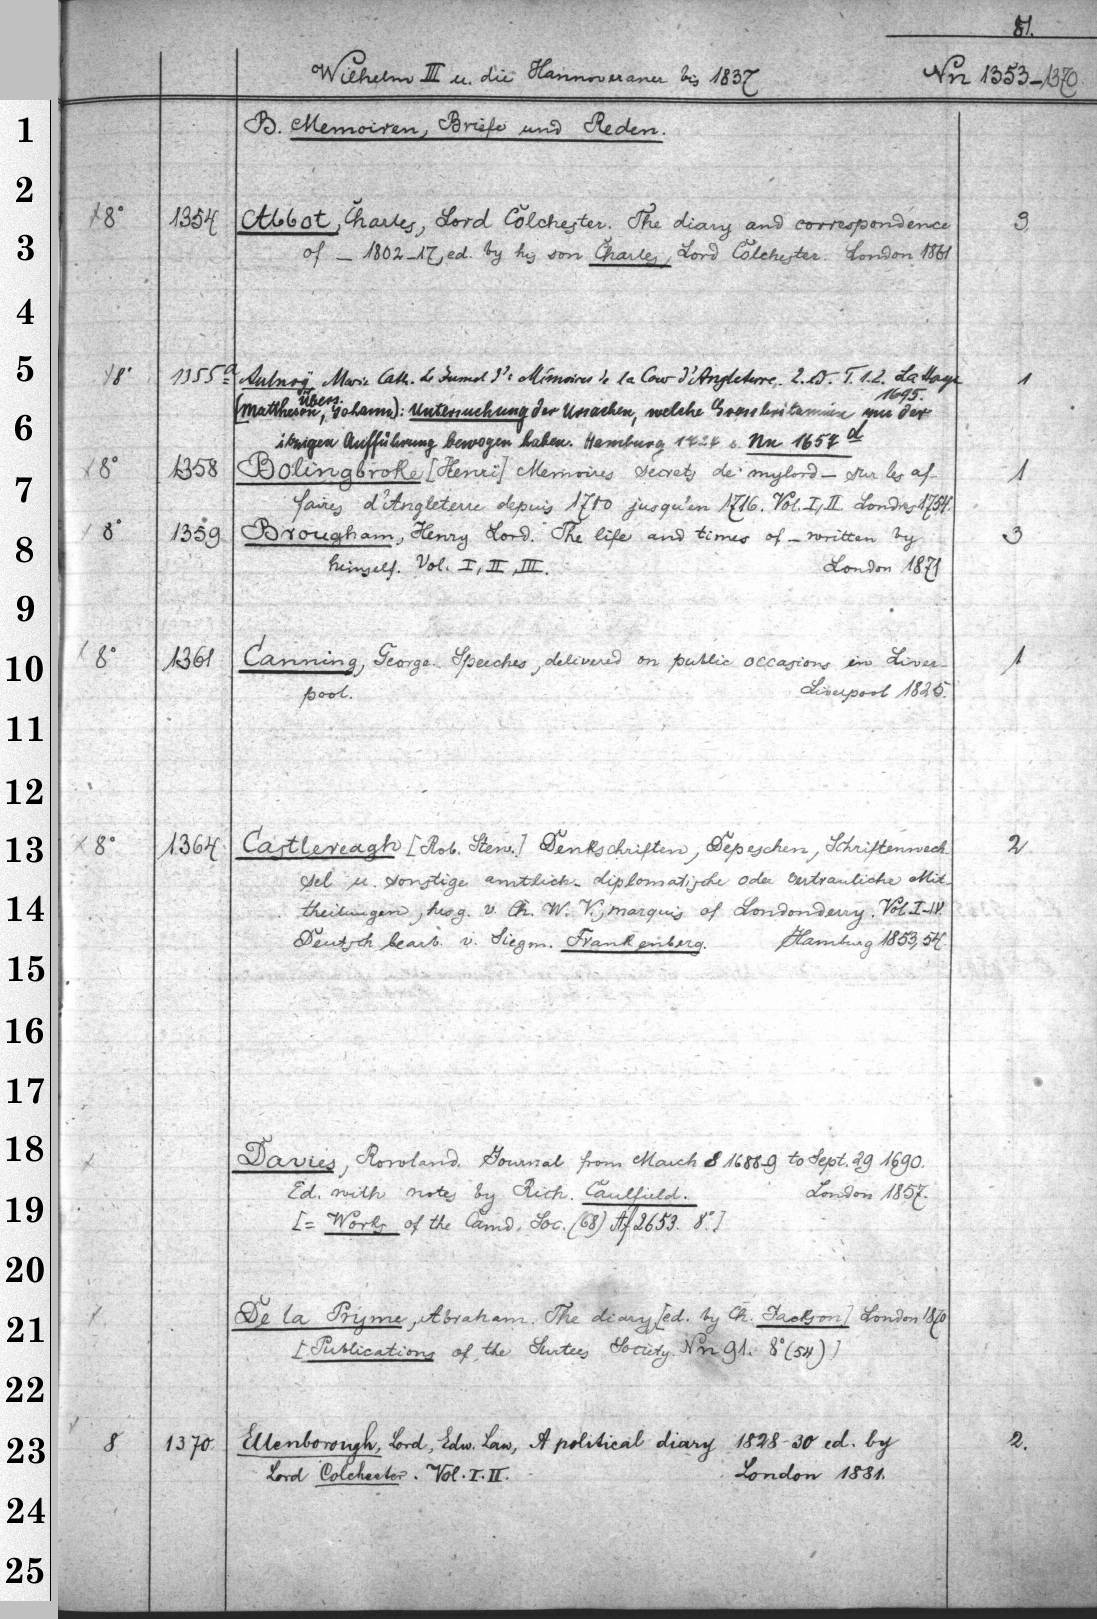 81.
Wilhelm III u. die Hannoveraner bis 1837 Nn 1353-1370
1 B. Memoiren, Briefe und Reden.
2
8° 1354 Abbot, Charles, Lord Colchester. The diary and correspondence 3
3 of — 1802-17, ed. by his son Charles, Lord Colchester. London 1861
4
5 8° 1355a Aulnoy, Marie Cath. Le Jumel d': Mémoires de la Cour d'Angleterre. 2. ed. T. 1.2. La Haye 1
1695.
Übers.
6 (Mattheson, Johann): Untersuchung der Ursachen, welche Grossbritannien zu der
itzigen Aufführung bewogen haben. Hamburg 1724 s. Nn 1657d
7 8° 1358 Bolingbroke [Henri] Memoires secrets de mylord — sur les af- 1
faires d'Angleterre depuis 1710 jusqu'en 1716. Vol. I, II Londres 1754.
8 8° 1359 Brougham, Henry Lord. The life and times of — written by 3
himself. Vol. I, II, III. London 1871
9
10 8° 1361 Canning, George. Speeches, delivered on public occasions in Liver- 1
pool. Liverpool 1825.
11
12
13 8° 1364 Castlereagh [Rob. Stew.] Denkschriften, Depeschen, Schriftenwech- 2
sel u. sonstige amtlich-diplomatische oder vertrauliche Mit-
14 theilungen, hrsg. v. Ch. W. V., marquis of Londonderry. Vol. I-IV.
Deutsch bearb. v. Siegm. Frankenberg. Hamburg 1853, 54.
15
16
17
18 Davies, Rowland. Journal from March 8 1688-9 to Sept. 29 1690.
Ed. with notes by Rich. Caulfield. London 1857.
19 [= Works of the Camd. Soc. (68) Af 2653. 8°.]
20
21 De la Pryme, Abraham. The diary [ed. by Ch. Jackson] London 1870
[Publications of the Surtees Society. Nn 91. 8° (54)]
22
23 8 1370 Ellenborough, Lord, Edw. Law, A political diary 1828-30 ed. by 2.
Lord Colchester. Vol. I. II. London 1881.
24
25